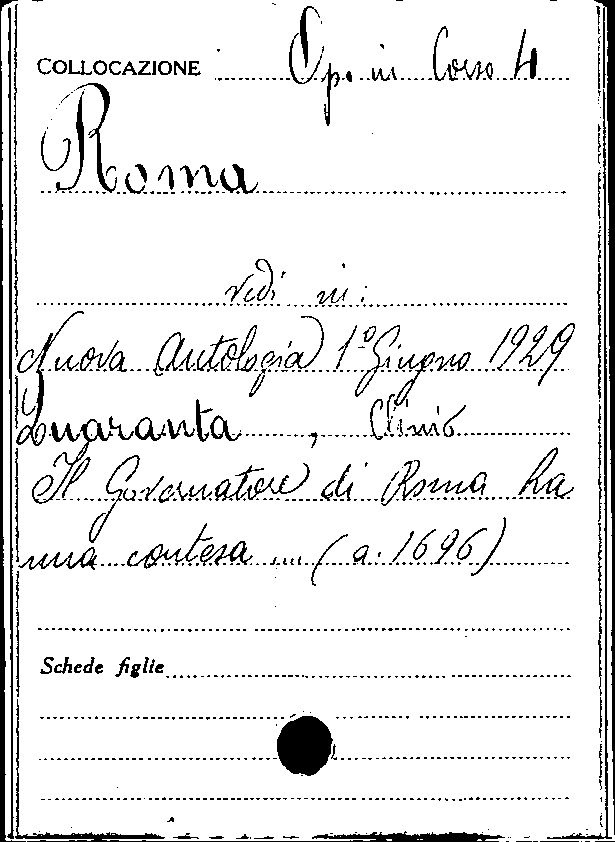 COLLOCAZIONE Op. in Corso 4
Roma
vedi in:
Nuova Antologia 1º Giugno 1929
Quaranta, Clinio
Il Governatore di Roma ha
una contesa .... (a. 1696)
Schede figlie